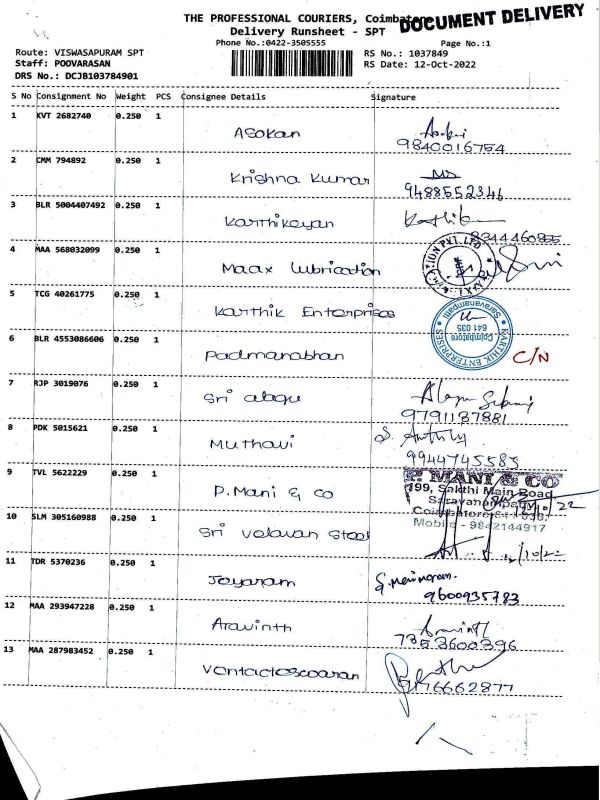 THE PROFESSIONAL COURIERS, Coimbatore
DOCUMENT DELIVERY
Delivery Runsheet - SPT
Phone No.:0422-3505555
Page No.:1
Route: VISWASAPURAM SPT
RS No.: 1037849
Staff: POOVARASAN
RS Date: 12-Oct-2022
DRS No.: DCJB103784901
S No Consignment No Weight PCS Consignee Details Signature
1 KVT 2682740 0.250 1
Asokan
9840016754
2 CMM 794892 0.250 1
Krishna Kumar
9488552346
3 BLR 5004407492 0.250 1
Karthikeyan
4 MAA 568032099 0.250 1
Maax lubrication
5 TCG 40261775 0.250 1
Karthik Enterprises
KARTHIK ENTERPRISES
Saravanampatti
Coimbatore
641 035
6 BLR 4553086606 0.250 1
Padmanabhan
C/N
7 RJP 3019076 0.250 1
Sri alagu
9791137881
8 PDK 5015621 0.250 1
Muthavi
9944745583
9 TVL 5622229 0.250 1
P.Mani & co
P. MANI & CO
199, Sakthi Main Road
Saravanampatty
Mobile - 9842144917
10 SLM 305160988 0.250 1
Sri velavan Steel
11 TDR 5370236 0.250 1
Jayaram
9600935783
12 MAA 293947228 0.250 1
Aravinth
7353600396
13 MAA 287983452 0.250 1
9176662877